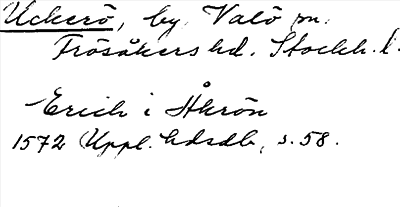 Uckerö, by, Valö sn.
Frösåkers hd. Stockh. l.
Erich i Åkrön
1572 Uppl. hdsdb, s. 58.